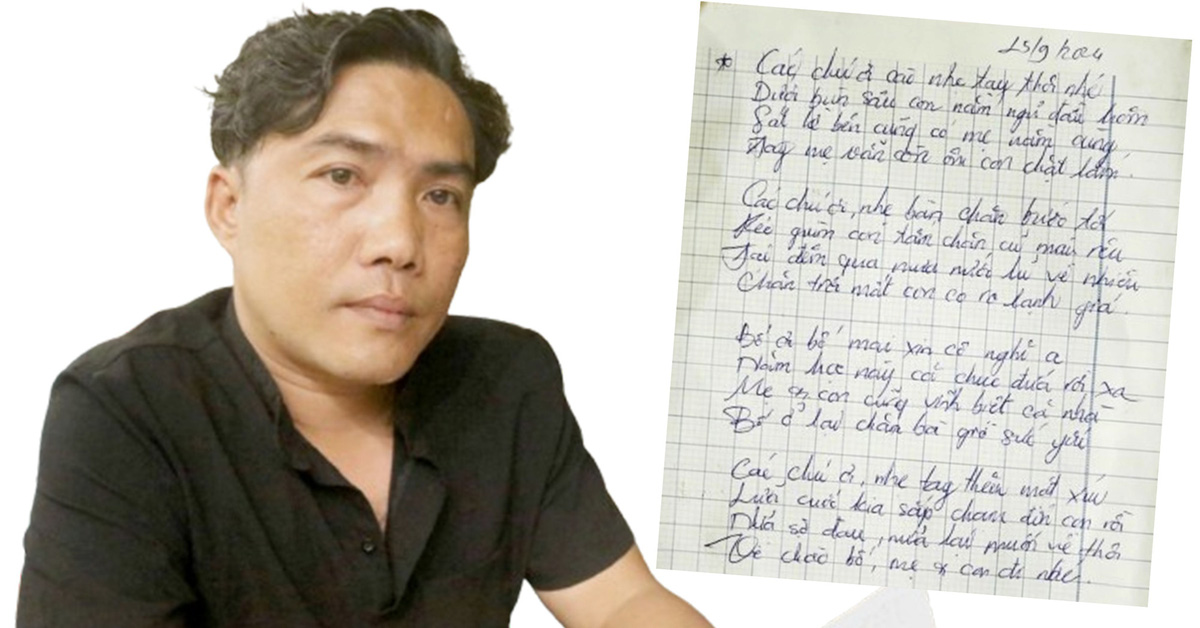 15/9/2024
* Các chú ơi đào nhẹ tay thôi nhé
Dưới bùn sâu con nằm ngủ đấy
Sát lề bên cũng có mẹ nằm cùng
Tay mẹ vẫn còn ôm con chặt lắm.
Các chú ơi, nhẹ bàn chân bước tới
Kéo giùm con tấm chăn cũ màu rêu
Tại đêm qua mưa nước lũ về nhiều
Chăn trôi mất con co ro lạnh giá.
Bố ơi bố mai xin cô nghỉ ạ
Năm học này cả chục đứa rời xa
Mẹ và con cũng vĩnh biệt cả nhà
Bố ở lại chăn bà già sức yếu
Các chú ơi, nhẹ tay thêm một xíu
Lưỡi cuốc kia sắp chạm đến con rồi
Nhá sợ đau, nửa lại muốn về thôi
Về chào bố, mẹ và con đi nhé.